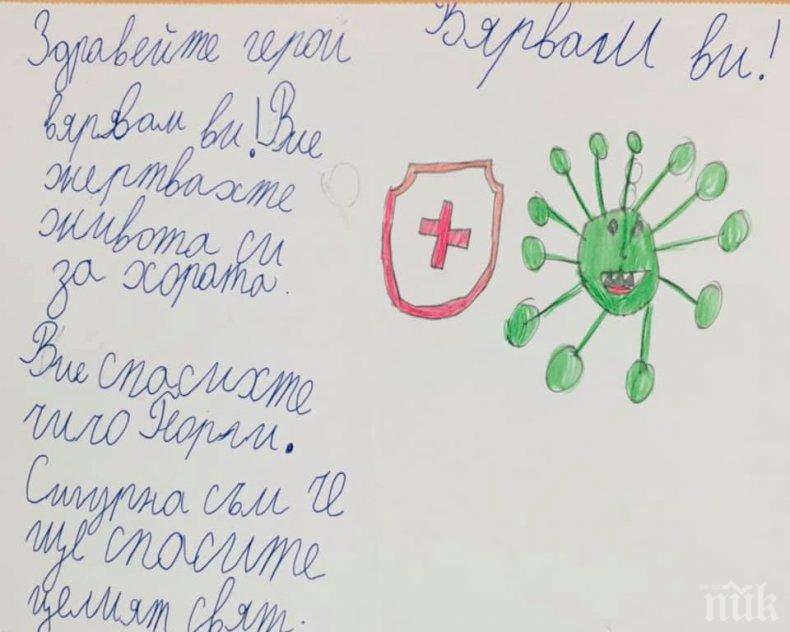 Здравейте герои
вярвам ви! Вие
жертвахте
живота си
за хората.
Вие спасихте
чичо Йордан.
Сигурна съм че
ще спасите
целият свят.
Вярвам ви!
пик